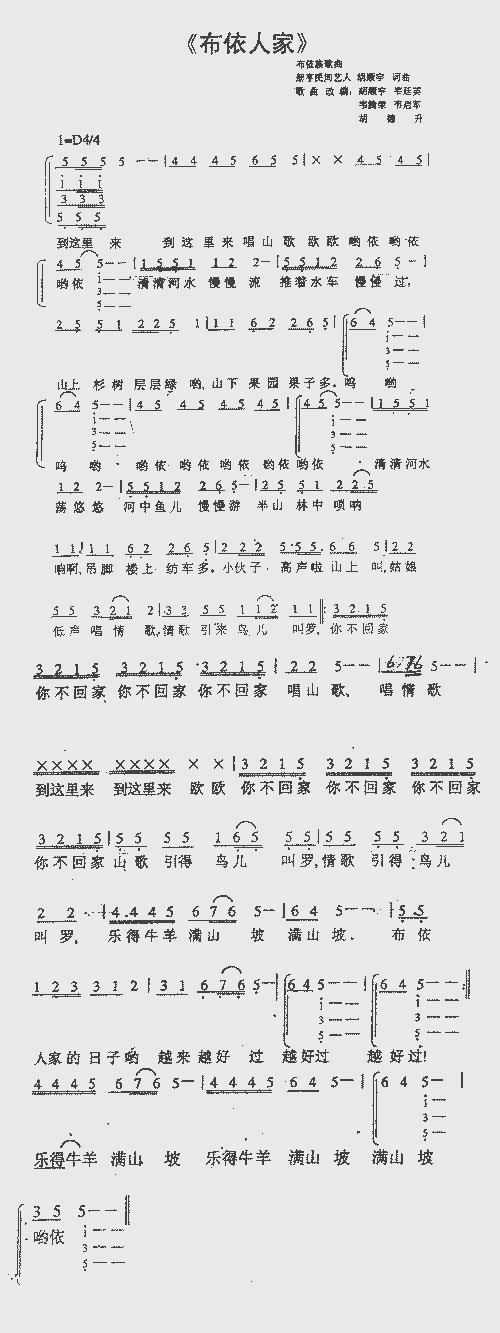 《布依人家》
布依族歌曲
册亨民间艺人 胡顺宇 词曲
歌曲改编：胡顺宇
1=D4/4
5 5 5 5 — — | 4 4 4 5 6 5 5 | × × 4 5 4 5 |
到这里 来 到 这 里 来 唱 山 歌 欧 欧 欧 哟 依 哟 依
4 5 5 — — | 1 5 5 1 1 2 2 — | 5 5 1 2 2 6 5 — |
哟依 清清河水 慢慢 流 推着水车 慢慢 过,
2 5 5 1 2 2 5 1 | 1 1 6 2 2 6 5 | 6 4 5 — — |
山上 杉树 层层绿 哟, 山下 果园 果子多。呜 哟
6 4 5 — — | 4 5 4 5 4 5 4 5 | 4 5 5 — — | 1 5 5 1
呜 哟 哟依 哟依 哟依 哟依 哟依 清清河水
1 2 2 — | 5 5 1 2 2 6 5 — | 2 5 5 1 2 2 5
荡悠悠 河中鱼儿 慢慢游 半山 林中 唢呐
1 1 | 1 1 6 2 2 2 6 5 | 2 2 2 5 5 5 6 6 5 | 2 2
响啊, 吊脚 楼上 纺车多。小伙子 高声啦 山上 叫, 姑娘
5 5 3 2 1 2 | 3 3 5 5 1 1 2 1 1 ‖: 3 2 1 5
低声 唱 情 歌, 情歌 引来 鸟 儿 叫罗, 你不回家
3 2 1 5 3 2 1 5 3 2 1 5 | 2 2 5 — — | 6 7 6 5 — — |
你不回家 你不回家 你不回家 唱山 歌、 唱情 歌
×××× ×××× × × | 3 2 1 5 3 2 1 5 3 2 1 5
到这里来 到这里来 欧 欧 你不回家 你不回家 你不回家
3 2 1 5 | 5 5 5 5 1 6 5 5 5 | 5 5 5 5 3 2 1
你不回家 山歌 引得 鸟儿 叫罗, 情歌 引得 鸟儿
2 2 — | 4 4 4 5 6 7 6 5 — | 6 4 5 — | 5 5
叫 罗, 乐得牛羊 满山 坡 满山 坡、 布 依
1 2 3 3 1 2 | 3 1 6 7 6 5 — | 6 4 5 — — | 6 4 5 — — :‖
人家的 日子哟 越来 越好 过 越好过 越好过!
4 4 4 5 6 7 6 5 — | 4 4 4 5 6 4 5 — | 6 4 5 — |
乐得牛羊 满山 坡 乐得牛羊 满山 坡 满山 坡
3 5 5 — — ‖
哟依